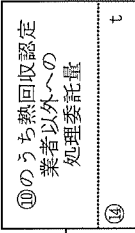 ⑩のうち熱回収認定
業者以外への
処理委託量
⑭ t